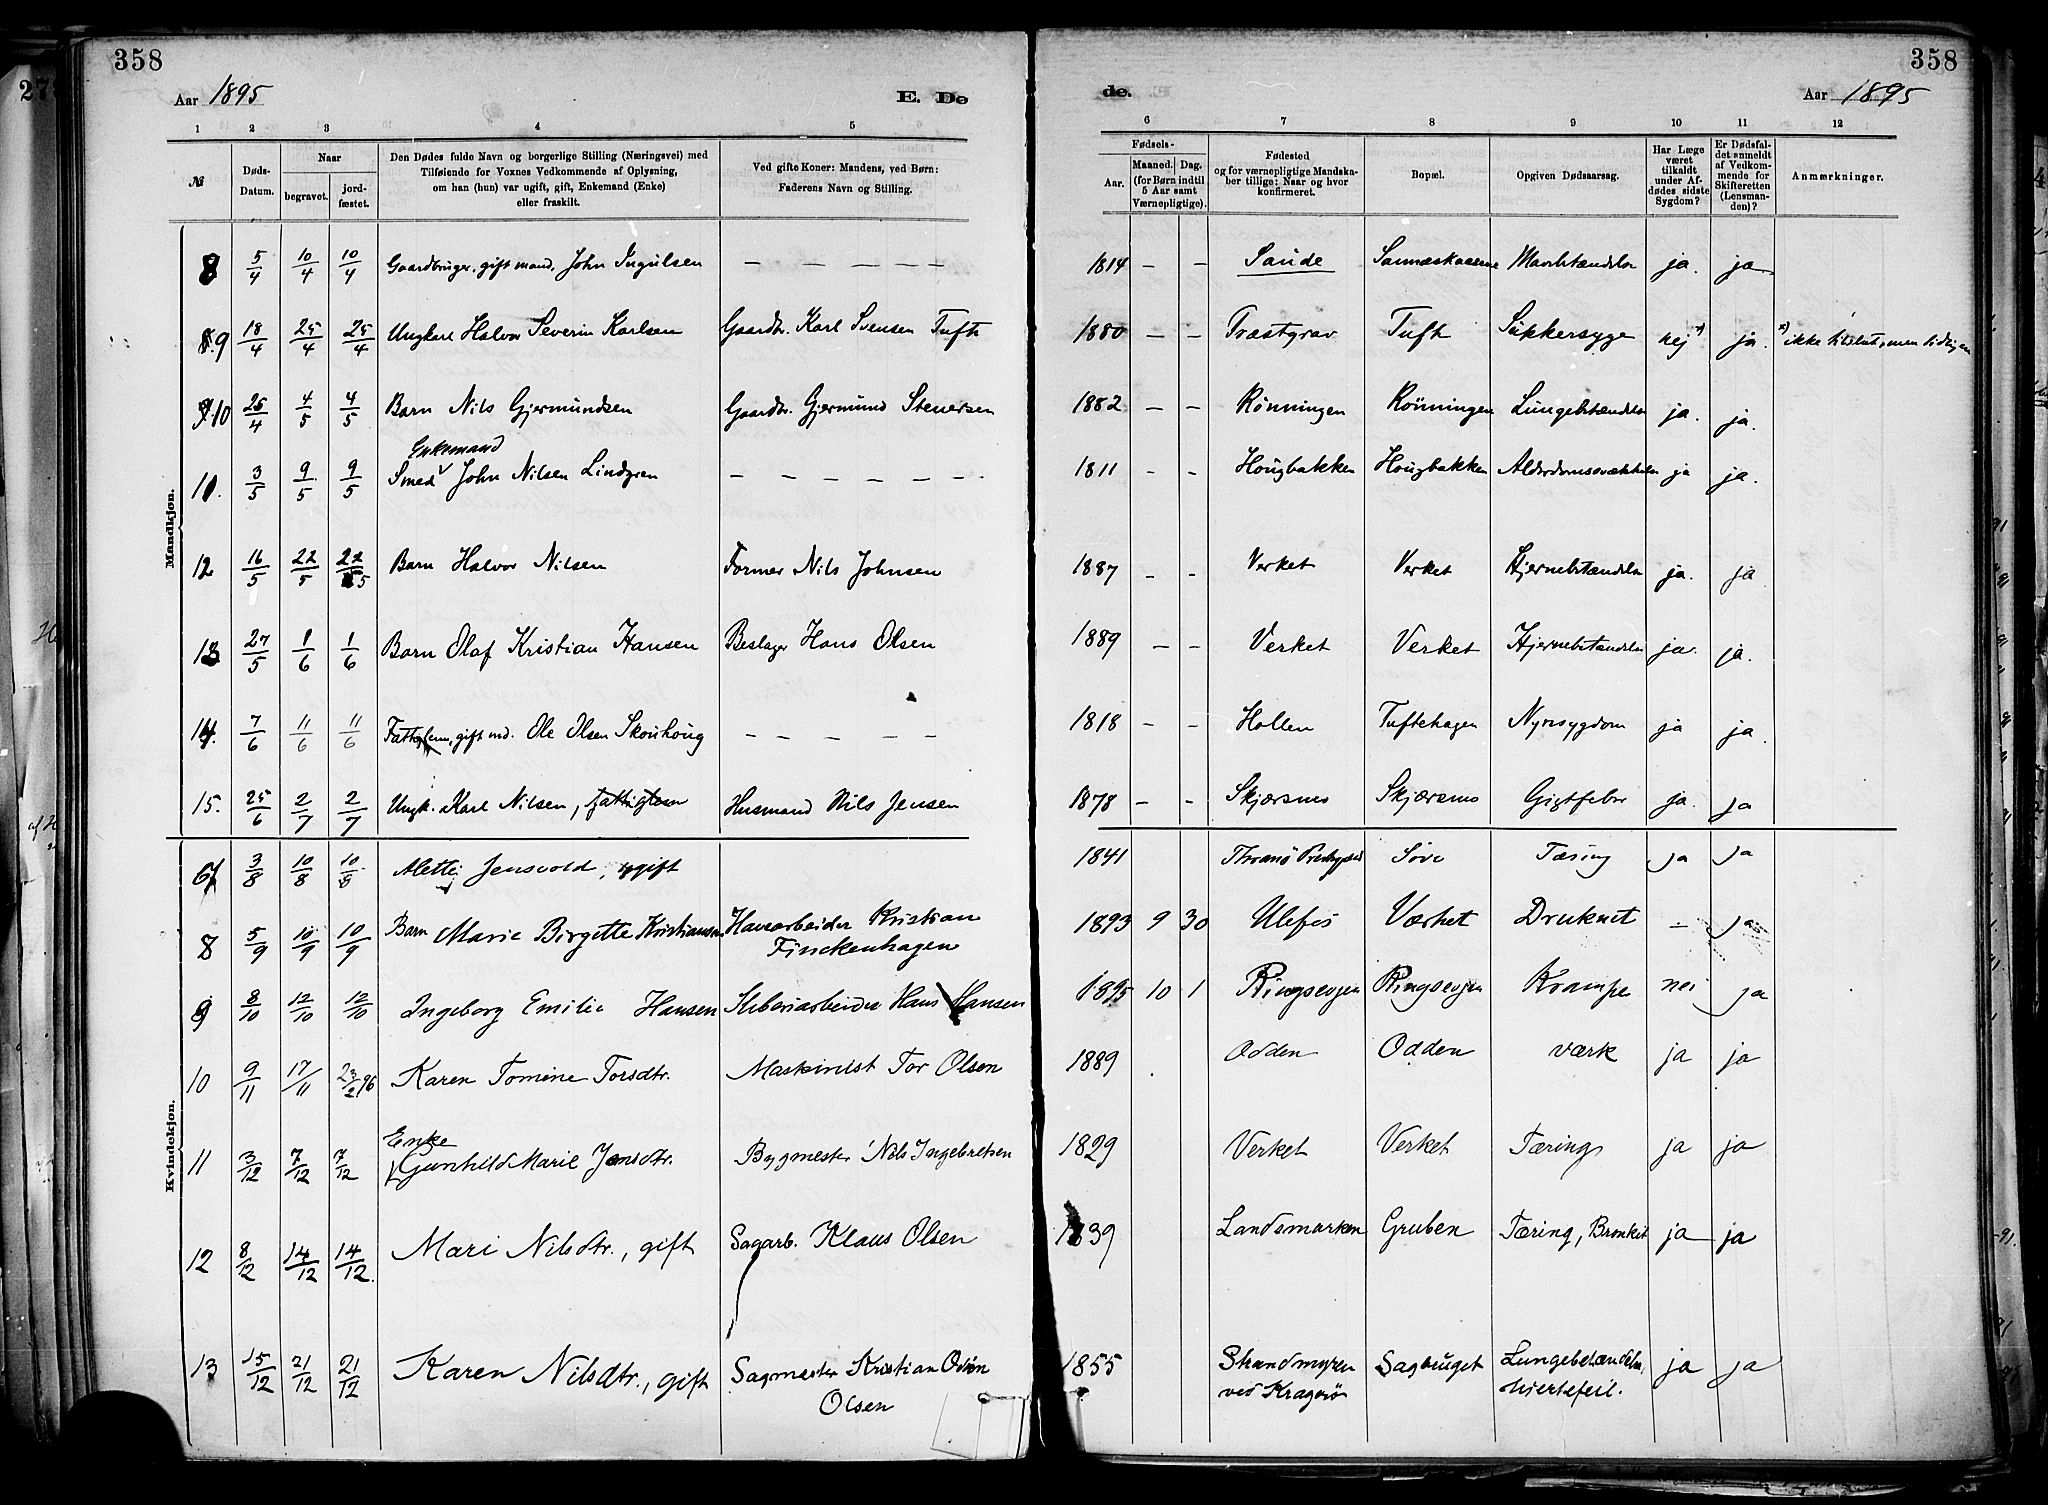 358
Aar 1895
E. De
1 2 3 4 5
№
Døds-Datum.
Naar
begravet.
jord-fæstet.
Den Dødes fulde Navn og borgerlige Stilling (Næringsvei) med
Tilføiende for Voxnes Vedkommende af Oplysning,
om han (hun) var ugift, gift, Enkemand (Enke)
eller fraskilt.
Ved gifte Koner: Mandens, ved Børn:
Faderens Navn og Stilling.
Mandkjøn.
8 5/4 10/4 10/4 Gaardbruger, gift mand, John Ingulsen — — — — — —
9 18/4 25/4 25/4 Ungkarl Halvor Severin Karlsen Gaardbr. Karl Svensen Tufte
10 25/4 4/5 4/5 Barn Nils Gjermundsen Gaardbr. Gjermund Stenersen
Enkemand
11. 3/5 9/5 9/5 Smed John Nilsen Lindgren — — — — — —
12 16/5 22/5 22/5 Barn Halvor Nilsen Former Nils Johnsen
13 27/5 1/6 1/6 Barn Olaf Kristian Hansen Beslager Hans Olsen
14. 7/6 11/6 11/6 gift md. Ole Olsen Skouhoug — — — — —
15. 25/6 2/7 2/7 Ungk. Karl Nilsen, fattiglem Husmand Nils Jensen
Kvindekjøn.
3/8 10/8 10/8 Jensvold, ugift
8 5/9 10/9 10/9 Barn Marie Birgette Kristiansen Havearbeider Kristian
Finckenhagen
9 8/10 12/10 12/10 Ingeborg Emilie Hansen Hans Hansen
10 9/11 17/11 23/2 96 Karen Tomine Torsdtr. Maskinist Tor Olsen
Enke
11 3/12 7/12 7/12 Gunhild Marie Jensdtr. Bygmester Nils Ingebretsen
12 8/12 14/12 14/12. Mari Nilsdtr., gift Sagarb. Klaus Olsen
13 15/12 21/12 21/12 Karen Nilsdtr., gift Sagmester Kristian Odin
Olsen
358
de.
Aar 1895
6 7 8 9 10 11 12
Fødsels-
Aar.
Maaned. Dag.
(for Børn indtil
5 Aar samt
Værnepligtige).
Fødested
og for værnepligtige Mandska-
ber tillige: Naar og hvor
konfirmeret.
Bopæl.
Opgiven Dødsaarsag.
Har Læge
været
tilkaldt
under Af-
dødes sidste
Sygdom?
Er Dødsfal-
det anmeldt
af Vedkom-
mende for
Skifteretten
(Lensman-
den)?
Anmærkninger.
1814 — — Saude ja. ja
1880 — — Træstgrav Tuft Sukkersyge nej *) ja. *) ikke tilslut, men tidligere
1882 — — Rönningen Rönningen Lungebetændelse ja. ja.
1811 - - Hougbakken Hougbakken Alderdomssvækkelse ja ja.
1887 - - Verket Verket Hjernebetændelse ja. ja
1889 - - Verket Verket Hjernebetændelse ja. ja.
1818 - - Hollen Tuftehagen Nyresygdom ja ja.
1878 - - Skjærsmo Skjærsmo Gigtfeber ja. ja
1841 Søve Tæring ja ja
1893 9 30 Ulefos Værket Druknet — ja
1895 10 1 Ringsevjen Ringsevjen Krampe nei ja
1889 . Odden Odden værk ja ja
1829 Verket Verket Tæring ja ja
1839 Landsmarken Gruben Tæring, Bronkit ja ja
1855 Strandmyren Sagbruget Lungebetændelse, ja ja
ved Kragerö hjertefeil.